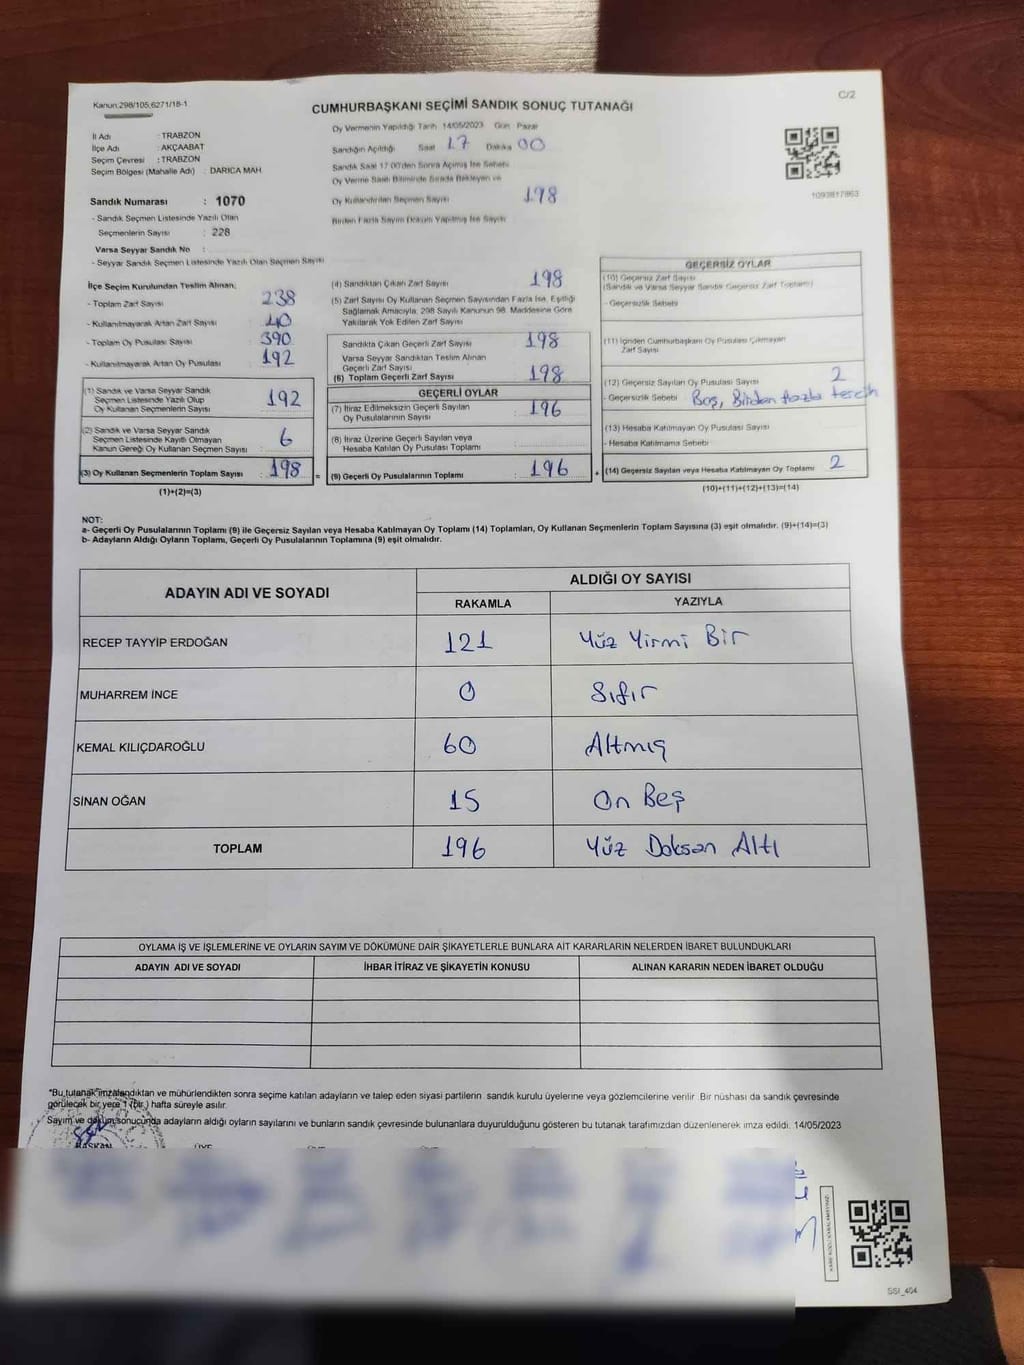 Kanun:298/105,6271/18-1
C/2
CUMHURBAŞKANI SEÇİMİ SANDIK SONUÇ TUTANAĞI
İl Adı : TRABZON
İlçe Adı : AKÇAABAT
Seçim Çevresi : TRABZON
Seçim Bölgesi (Mahalle Adı) : DARICA MAH.
Sandık Numarası : 1070
- Sandık Seçmen Listesinde Yazılı Olan
Seçmenlerin Sayısı : 228
Varsa Seyyar Sandık No :
- Seyyar Sandık Seçmen Listesinde Yazılı Olan Seçmen Sayısı
Oy Vermenin Yapıldığı Tarih 14/05/2023 Gün Pazar
Sandığın Açıldığı Saat 17 Dakika 00
Sandık Saat 17.00'den Sonra Açılmış İse Sebebi
Oy Verme Saati Bitiminde Sırada Bekleyen ve
Oy Kullandırılan Seçmen Sayısı 198
Birden Fazla Sayım Döküm Yapılmış İse Sayısı
1093817963
İlçe Seçim Kurulundan Teslim Alınan;
- Toplam Zarf Sayısı 238
- Kullanılmayarak Artan Zarf Sayısı 40
- Toplam Oy Pusulası Sayısı 390
- Kullanılmayarak Artan Oy Pusulası 192
(1) Sandık ve Varsa Seyyar Sandık
Seçmen Listesinde Yazılı Olup
Oy Kullanan Seçmenlerin Sayısı 192
(2) Sandık ve Varsa Seyyar Sandık
Seçmen Listesinde Kayıtlı Olmayan
Kanun Gereği Oy Kullanan Seçmen Sayısı 6
(3) Oy Kullanan Seçmenlerin Toplam Sayısı : 198 =
(1)+(2)=(3)
(4) Sandıktan Çıkan Zarf Sayısı 198
(5) Zarf Sayısı Oy Kullanan Seçmen Sayısından Fazla İse, Eşitliği
Sağlamak Amacıyla; 298 Sayılı Kanunun 98. Maddesine Göre
Yakılarak Yok Edilen Zarf Sayısı
Sandıkta Çıkan Geçerli Zarf Sayısı 198
Varsa Seyyar Sandıktan Teslim Alınan
Geçerli Zarf Sayısı
(6) Toplam Geçerli Zarf Sayısı 198
GEÇERLİ OYLAR
(7) İtiraz Edilmeksizin Geçerli Sayılan
Oy Pusulalarının Sayısı : 196
(8) İtiraz Üzerine Geçerli Sayılan veya
Hesaba Katılan Oy Pusulası Toplamı
(9) Geçerli Oy Pusulaların Toplamı : 196 +
GEÇERSİZ OYLAR
(10) Geçersiz Zarf Sayısı
(Sandık ve Varsa Seyyar Sandık Geçersiz Zarf Toplamı)
- Geçersizlik Sebebi
(11) İçinden Cumhurbaşkanı Oy Pusulası Çıkmayan
Zarf Sayısı
(12) Geçersiz Sayılan Oy Pusulası Sayısı 2
- Geçersizlik Sebebi Boş, Birden fazla tercih
(13) Hesaba Katılmayan Oy Pusulası Sayısı
- Hesaba Katılmama Sebebi
(14) Geçersiz Sayılan veya Hesaba Katılmayan Oy Toplamı 2
(10)+(11)+(12)+(13)=(14)
NOT:
a- Geçerli Oy Pusulalarının Toplamı (9) ile Geçersiz Sayılan veya Hesaba Katılmayan Oy Toplamı (14) Toplamları, Oy Kullanan Seçmenlerin Toplam Sayısına (3) eşit olmalıdır. (9)+(14)=(3)
b- Adayların Aldığı Oyların Toplamı, Geçerli Oy Pusulalarının Toplamına (9) eşit olmalıdır.
ADAYIN ADI VE SOYADI ALDIĞI OY SAYISI
RAKAMLA YAZIYLA
RECEP TAYYİP ERDOĞAN 121 Yüz Yirmi Bir
MUHARREM İNCE 0 Sıfır
KEMAL KILIÇDAROĞLU 60 Altmış
SİNAN OĞAN 15 On Beş
TOPLAM 196 Yüz Doksan Altı
OYLAMA İŞ VE İŞLEMLERİNE VE OYLARIN SAYIM VE DÖKÜMÜNE DAİR ŞİKAYETLERLE BUNLARA AİT KARARLARIN NELERDEN İBARET BULUNDUKLARI
ADAYIN ADI VE SOYADI İHBAR İTİRAZ VE ŞİKAYETİN KONUSU ALINAN KARARIN NEDEN İBARET OLDUĞU
*Bu tutanak imzalandıktan ve mühürlendikten sonra seçime katılan adayların ve talep eden siyasi partilerin sandık kurulu üyelerine veya gözlemcilerine verilir. Bir nüshası da sandık çevresinde
görülecek bir yere 1 (bir ) hafta süreyle asılır.
Sayım ve döküm sonucunda adayların aldığı oyların sayılarını ve bunların sandık çevresinde bulunanlara duyurulduğunu gösteren bu tutanak tarafımızdan düzenlenerek imza edildi. 14/05/2023
BAŞKAN
SSI_404